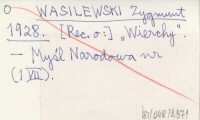 O WASILEWSKI Zygmunt
1928. [Rec. o:] „Wierchy".
— Myśl Narodowa nr
(1 VII).